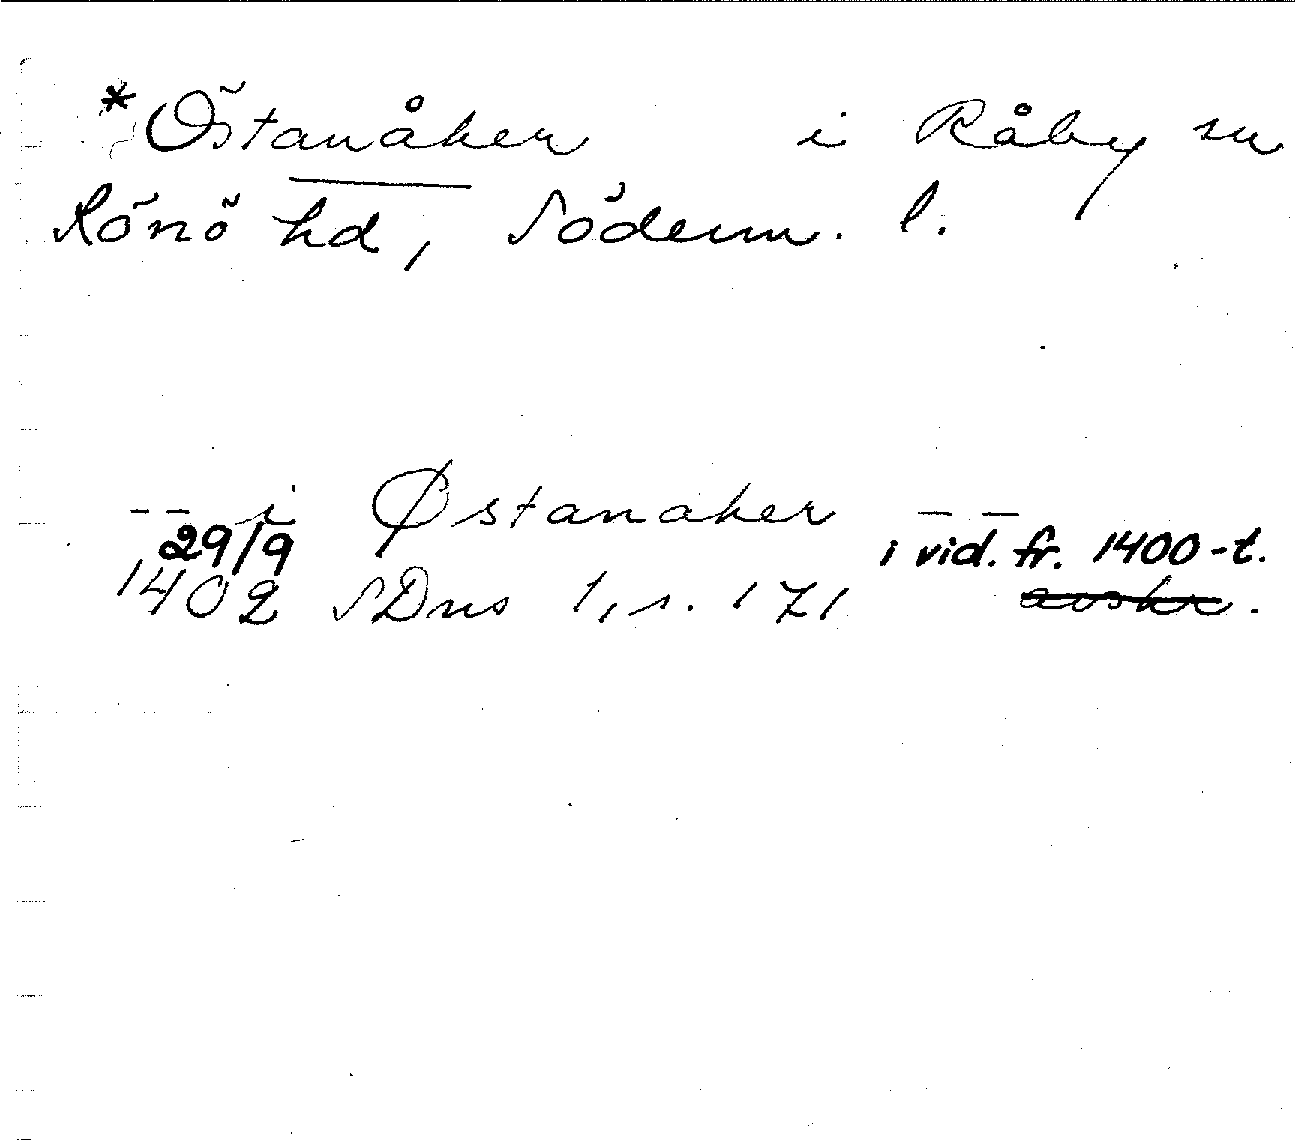 *Östanåker i Råby sn
Rönö hd, Söderm. l.
-- i Østanaker --
29/9 i vid. fr. 1400-t.
1402 SDns 1, s. 171 avskr.